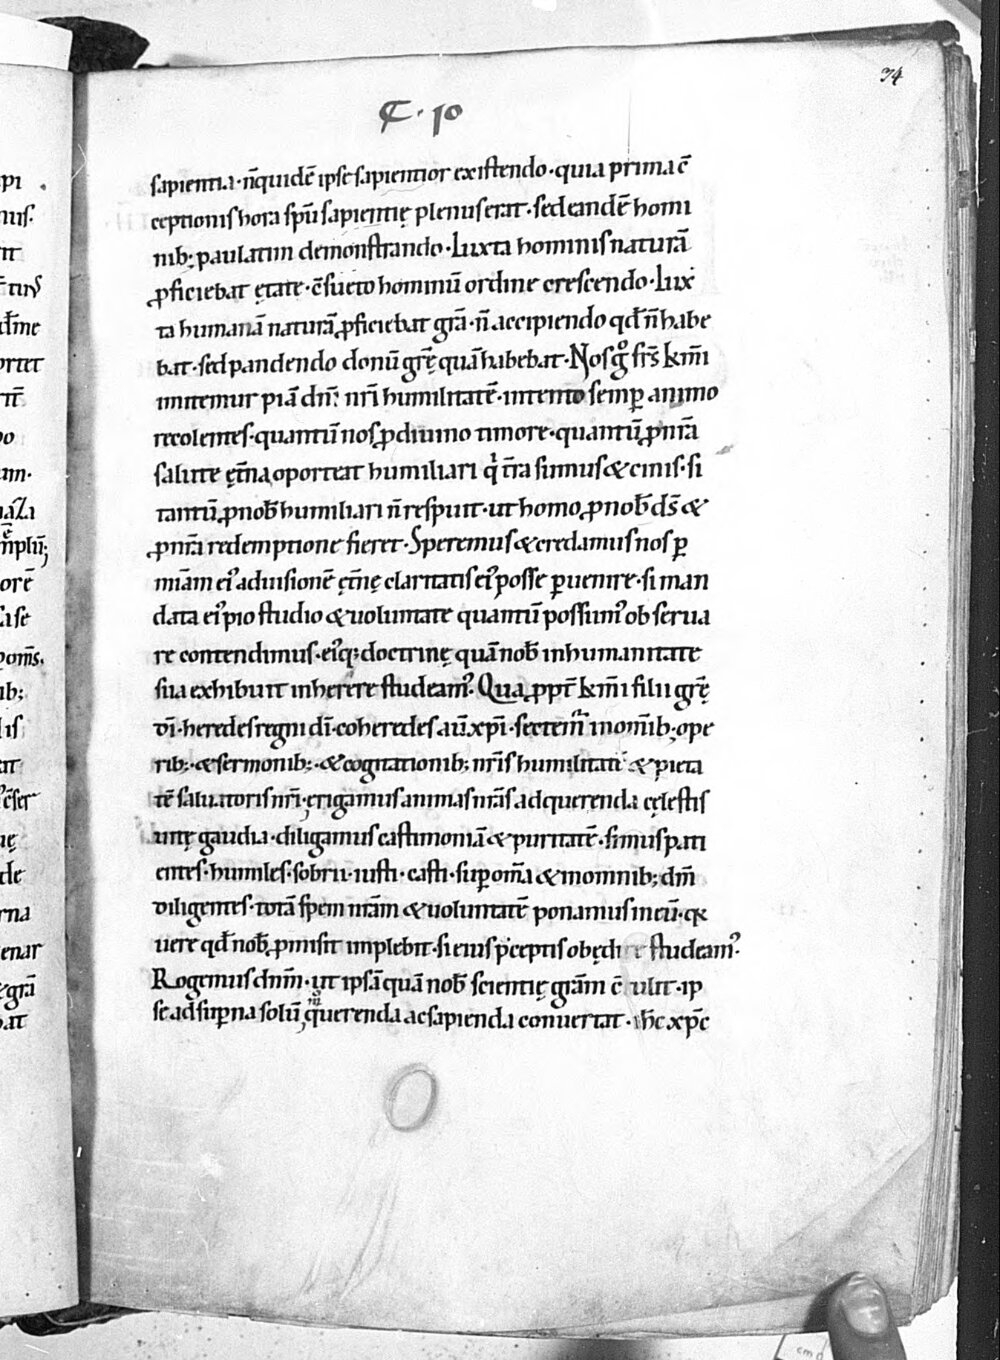 74
C · 10
sapientia · n̄quidē ipse sapientior existendo · quia prima c̄
ceptionis hora sp̄u sapientię plenus erat · sed eandē homi
nib; paulatim demonstrando · Iuxta hominis naturā
ꝓficiebat ętate · c̄sueto hominū ordine crescendo · Iux
ta humanā naturā ꝓficiebat gr̄a · n̄ accipiendo qd̄ n̄ habe
bat · sed pandendo donū gr̄ę quā habebat · Nos gͦ fr̄s k̄mi
imitemur piā dn̄i nr̄i humilitatē · intento semꝑ animo
recolentes · quantū nos ꝓ diuino timore · quantū ꝓ nr̄a
salute ęt̄na oporteat humiliari qͥ t̄ra sumus & cinis · si
tantū ꝓ nob̄ humiliari n̄ respuit · ut homo ꝓ nob̄ ds̄ &
ꝓ nr̄a redemptione fieret · Speremus & credamus nos ꝑ
miā̄m ei᾽ ad uisionē ęt̄nę claritatis ei᾽ posse ꝑuenire · si man
data ei᾽ pio studio & uoluntate quantū possum᾽ obserua
re contendimus · ei᾽q; doctrinę quā nob̄ in humanitate
sua exhibuit inherere studeam᾽ · Qua ꝓpt̄ k̄mi filii gr̄ę
dī · heredes regni dī · coheredes aū xp̄i · sectem᾽ in om̄ib; ope
rib; · & sermonib; · & cogitationib; nr̄is humilitatē & pieta
tē saluatoris nr̄i · erigamus animas nr̄as ad querenda cęlestis
uitę gaudia · diligamus castimoniā & puritatē · simus pati
entes · humiles · sobrii · iusti · casti · suꝑ om̄ia & in omnib; dn̄m
diligentes · totā spem nr̄am & uoluntatē ponamus in eū · qͥ
uere qd̄ nob̄ ꝓmisit implebit · si eius p̄ceptis obędire studeam᾽ ·
Rogemus dn̄m · ut ipsā quā nob̄ scientię gr̄am c̄tulit · ip
se ad suꝑna solū querenda ac sapienda conuertat · ih̄c xp̄c